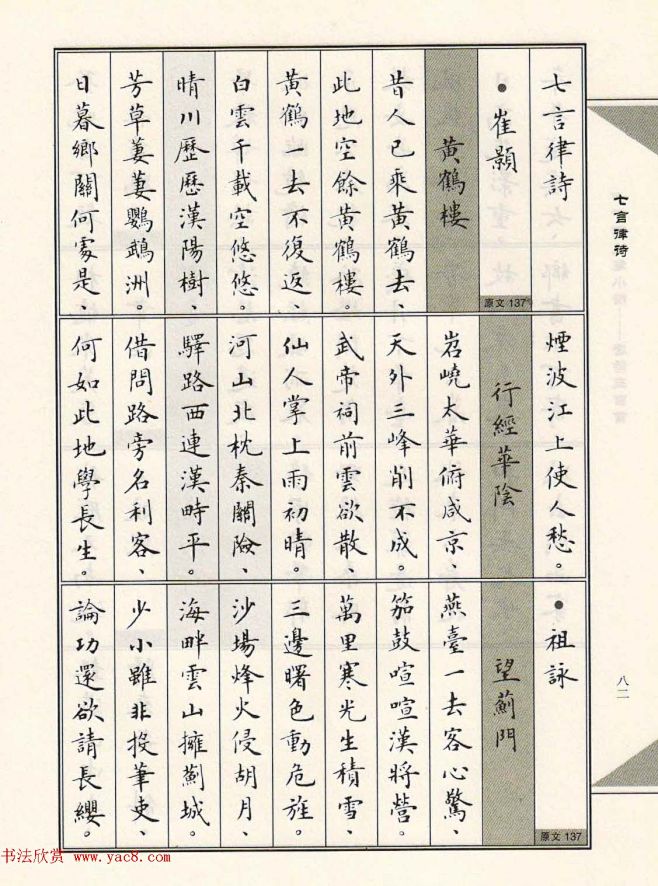 七言律詩
• 崔顥
黃鶴樓
原文137
昔人已乘黃鶴去、
此地空餘黃鶴樓。
黃鶴一去不復返、
白雲千載空悠悠。
晴川歷歷漢陽樹、
芳草萋萋鸚鵡洲。
日暮鄉關何處是、
煙波江上使人愁。
行經華陰
岧嶢太華俯咸京、
天外三峰削不成。
武帝祠前雲欲散、
仙人掌上雨初晴。
河山北枕秦關險、
驛路西連漢畤平。
借問路旁名利客、
何如此地學長生。
• 祖詠
望薊門
原文137
燕臺一去客心驚、
笳鼓喧喧漢將營。
萬里寒光生積雪、
三邊曙色動危旌。
沙場烽火侵胡月、
海畔雲山擁薊城。
少小雖非投筆吏、
論功還欲請長纓。
七言律诗
八二
书法欣赏 www.yac8.com